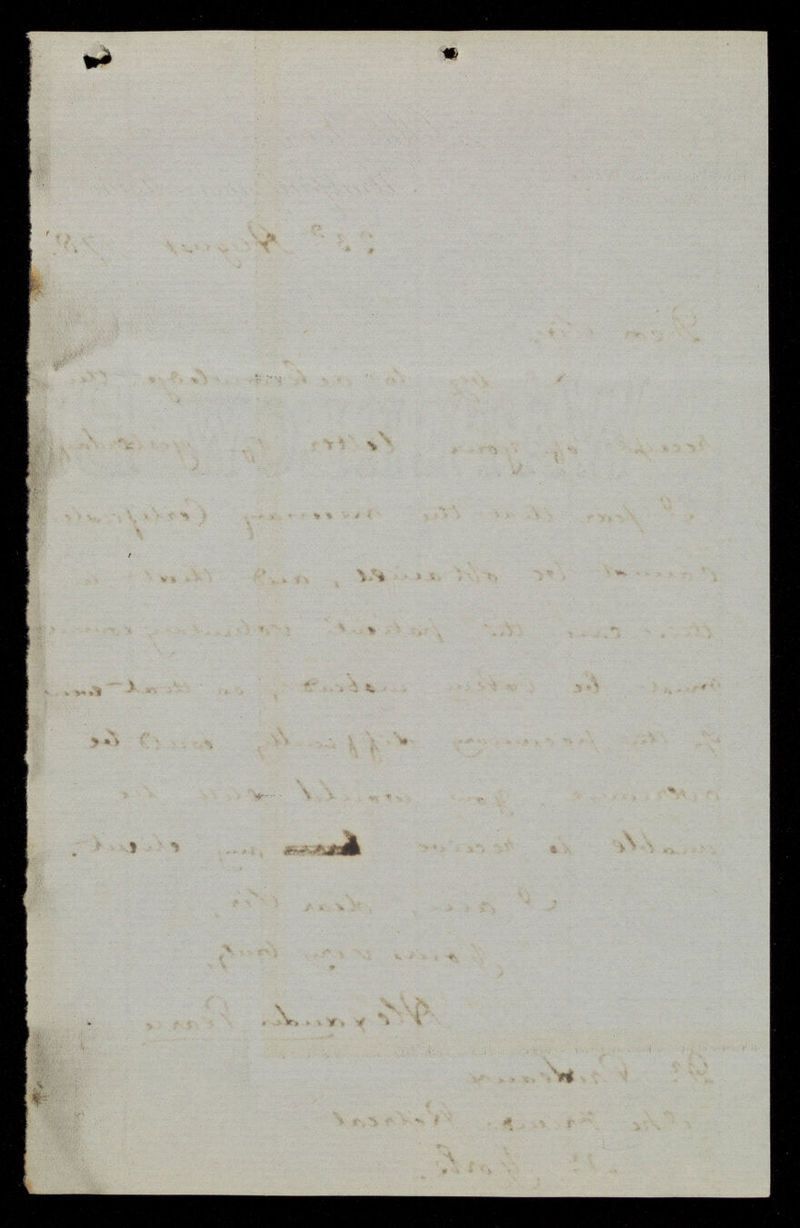 23d August 78.
Dear Sir,
I beg to acknowledge the
receipt of your letter of yesterday
I fear that the necessary Certificate
cannot be obtained, and that in
this case the patient voluntary
must be taken instead, or that even
if the pecuniary difficulty could be
overcome, you would still be
unable to receive my client.
I am, dear Sir,
Yours very truly,
Alexander
Dr.
The Friends Retreat
Nr. York.